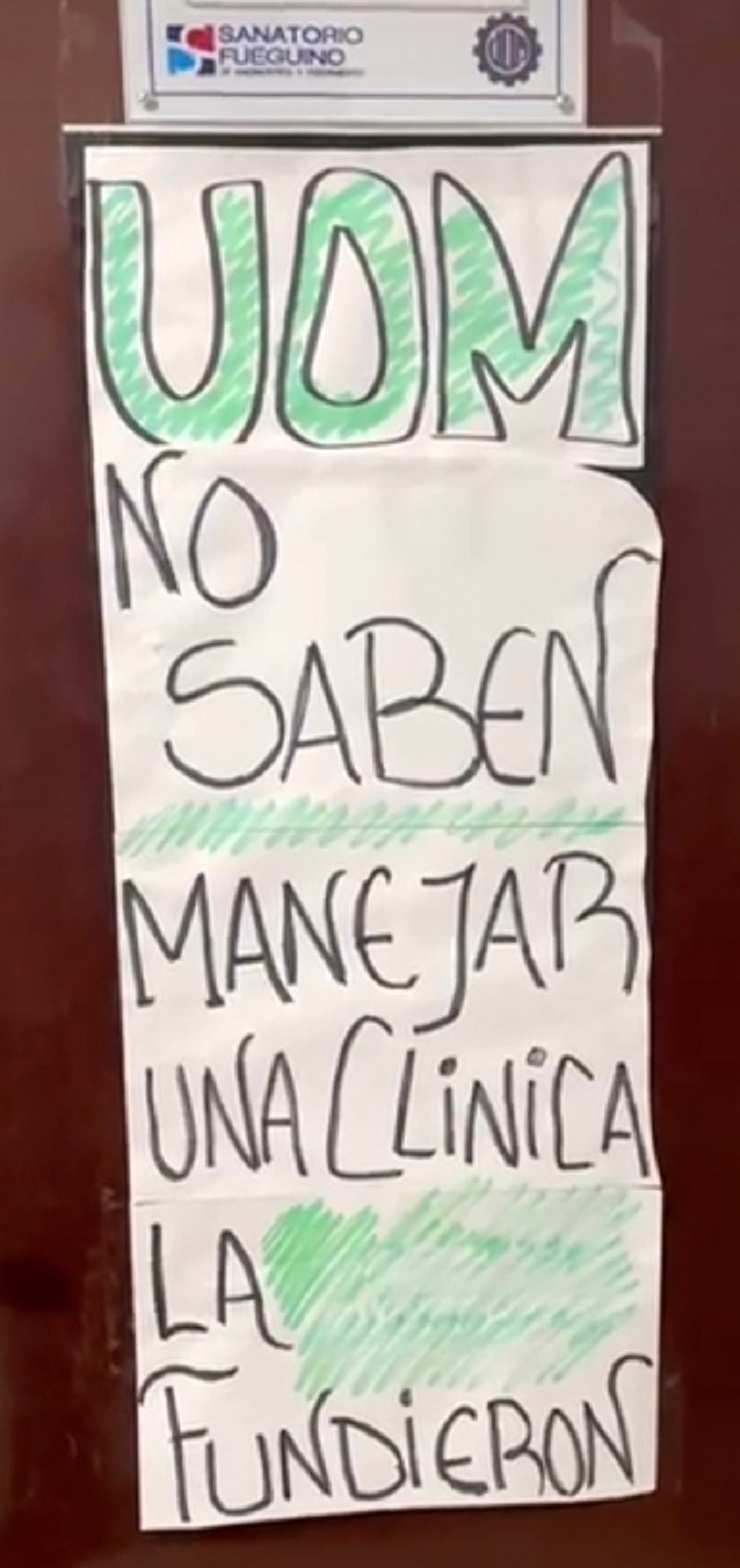 SANATORIO
FUEGUINO
UOM
UOM
NO
SABEN
MANEJAR
UNA CLiNiCA
LA
FUNDiERON